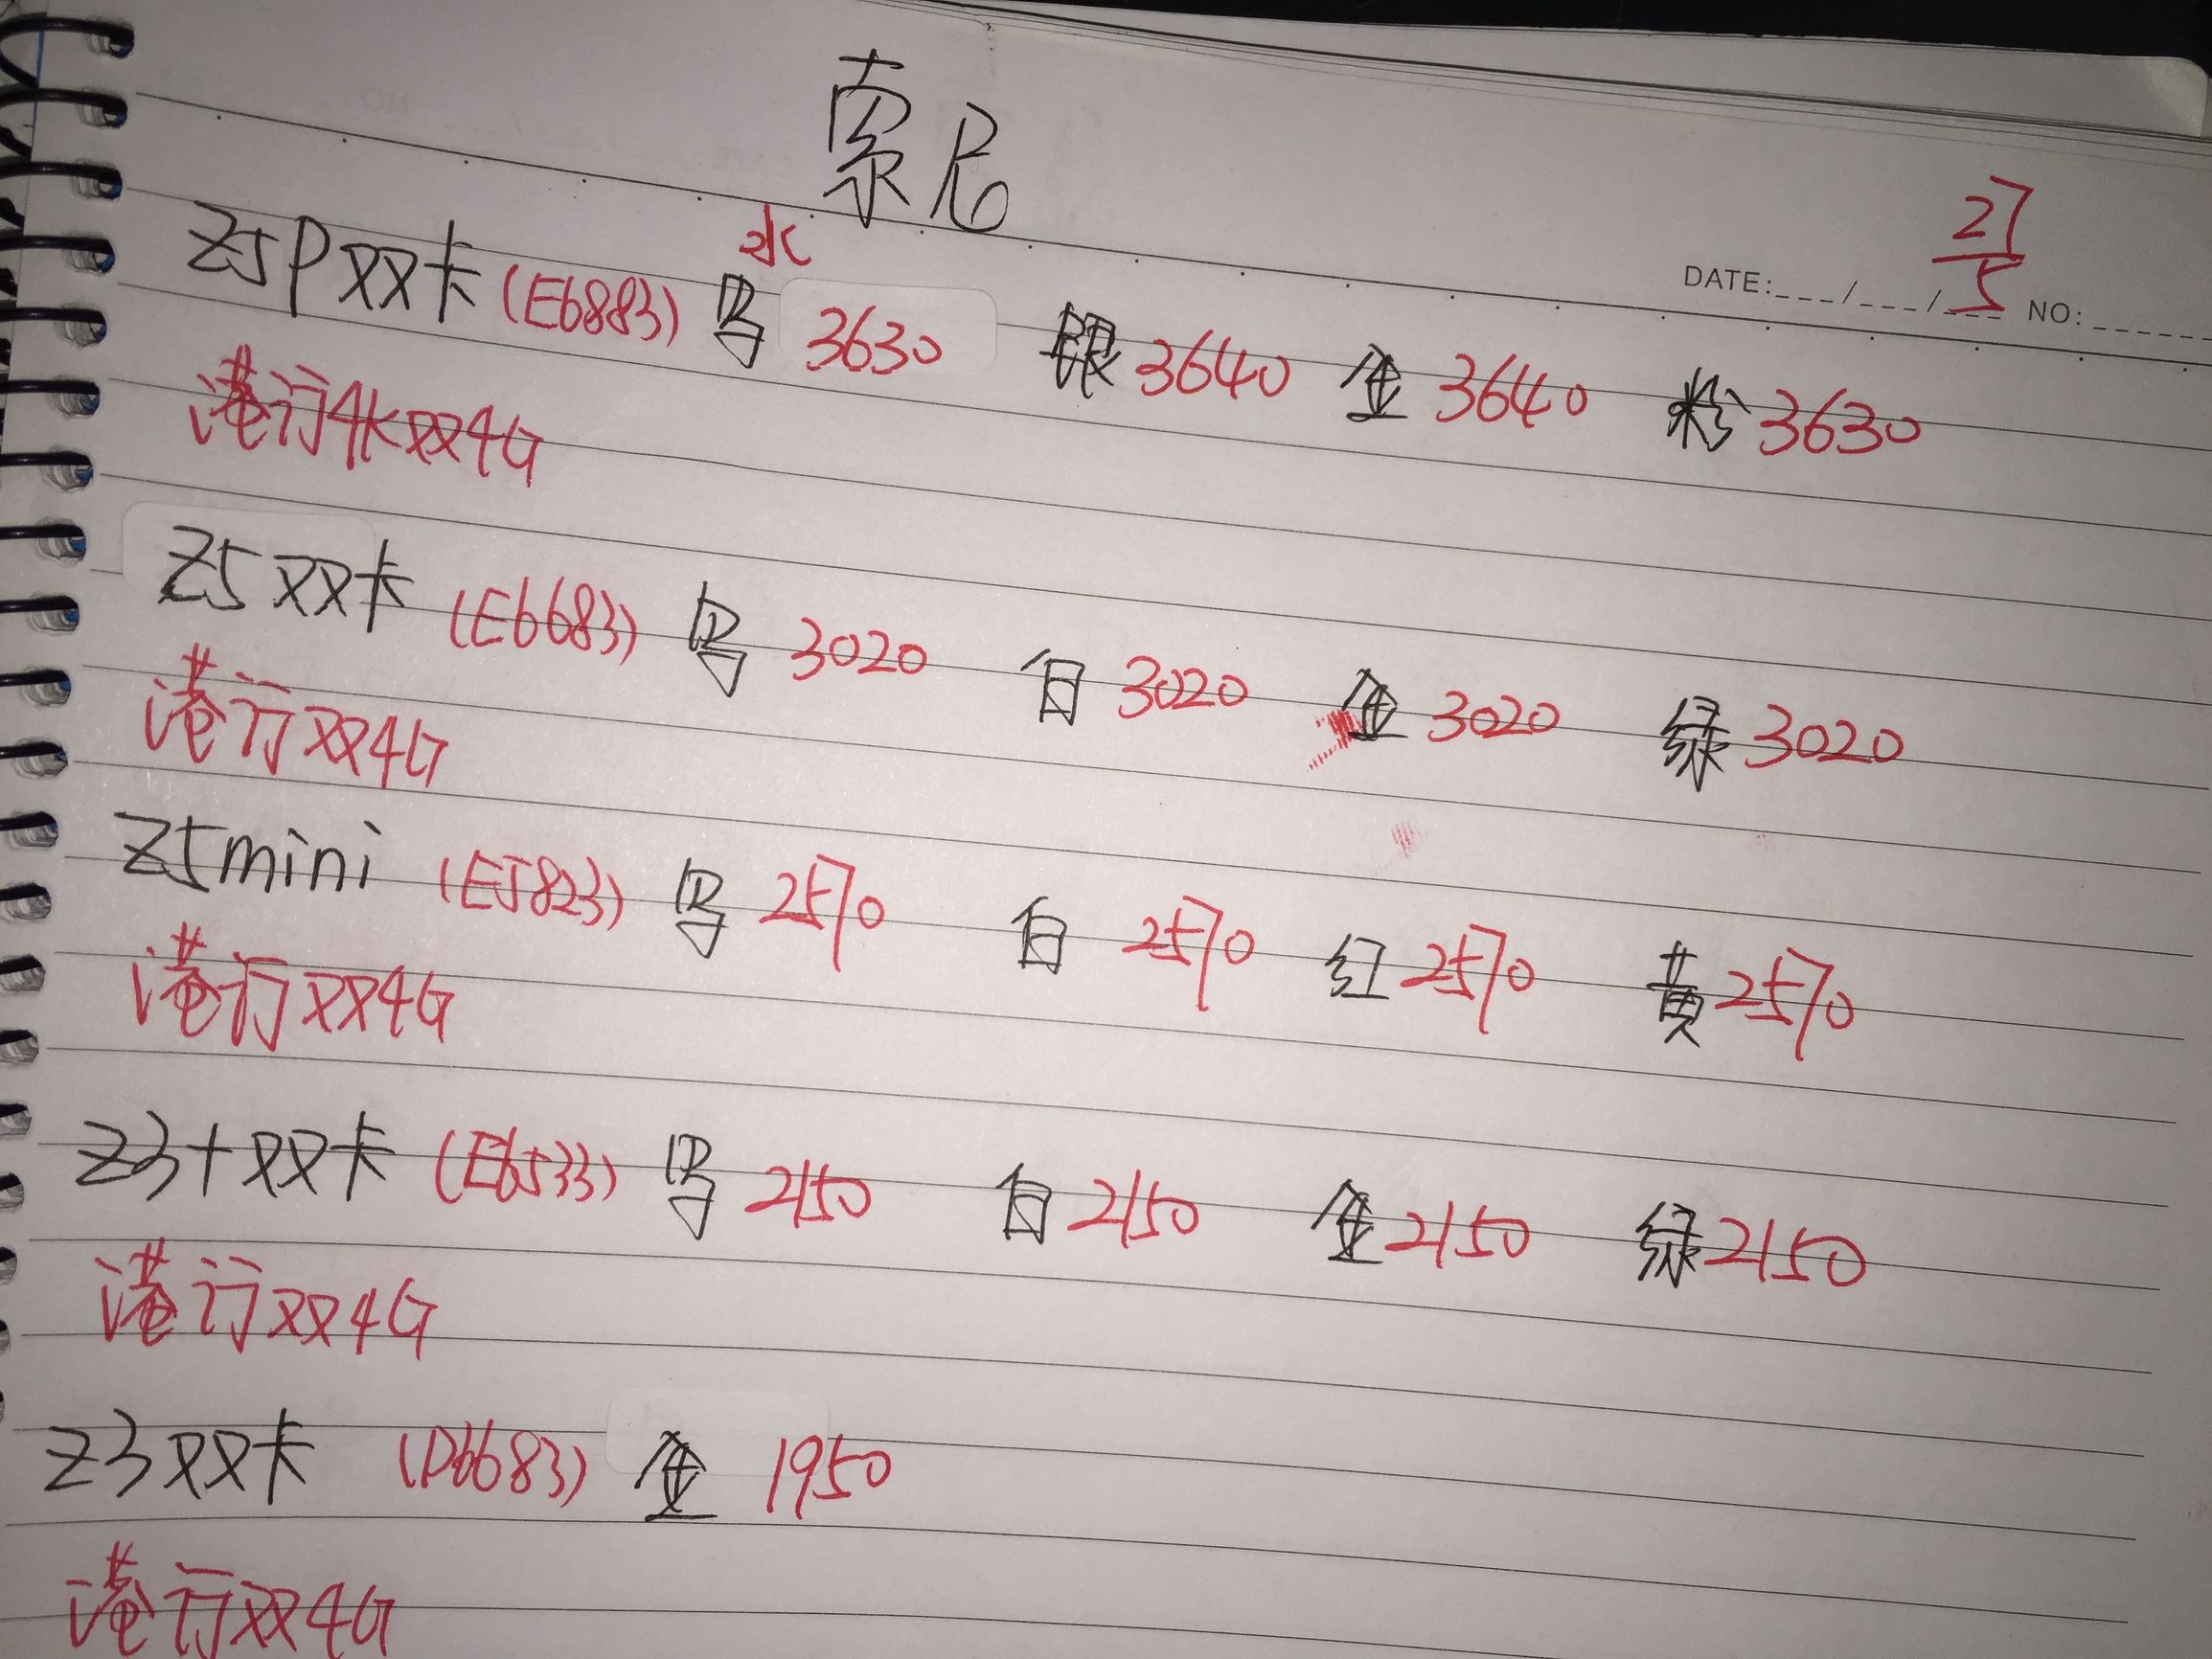 索尼
27/5
DATE:___/___/___ NO:______
水
Z5P双卡(E6883) 黑 3630 银 3640 金 3640 粉 3630
港行4K双4G
Z5双卡 (E6683) 黑 3020 白 3020 金 3020 绿 3020
港行双4G
Z5mini (E5823) 黑 2570 白 2570 红 2570 黄 2570
港行双4G
Z3+双卡 (E6533) 黑 2150 白 2150 金 2150 绿 2150
港行双4G
Z3双卡 (D6683) 金 1950
港行双4G